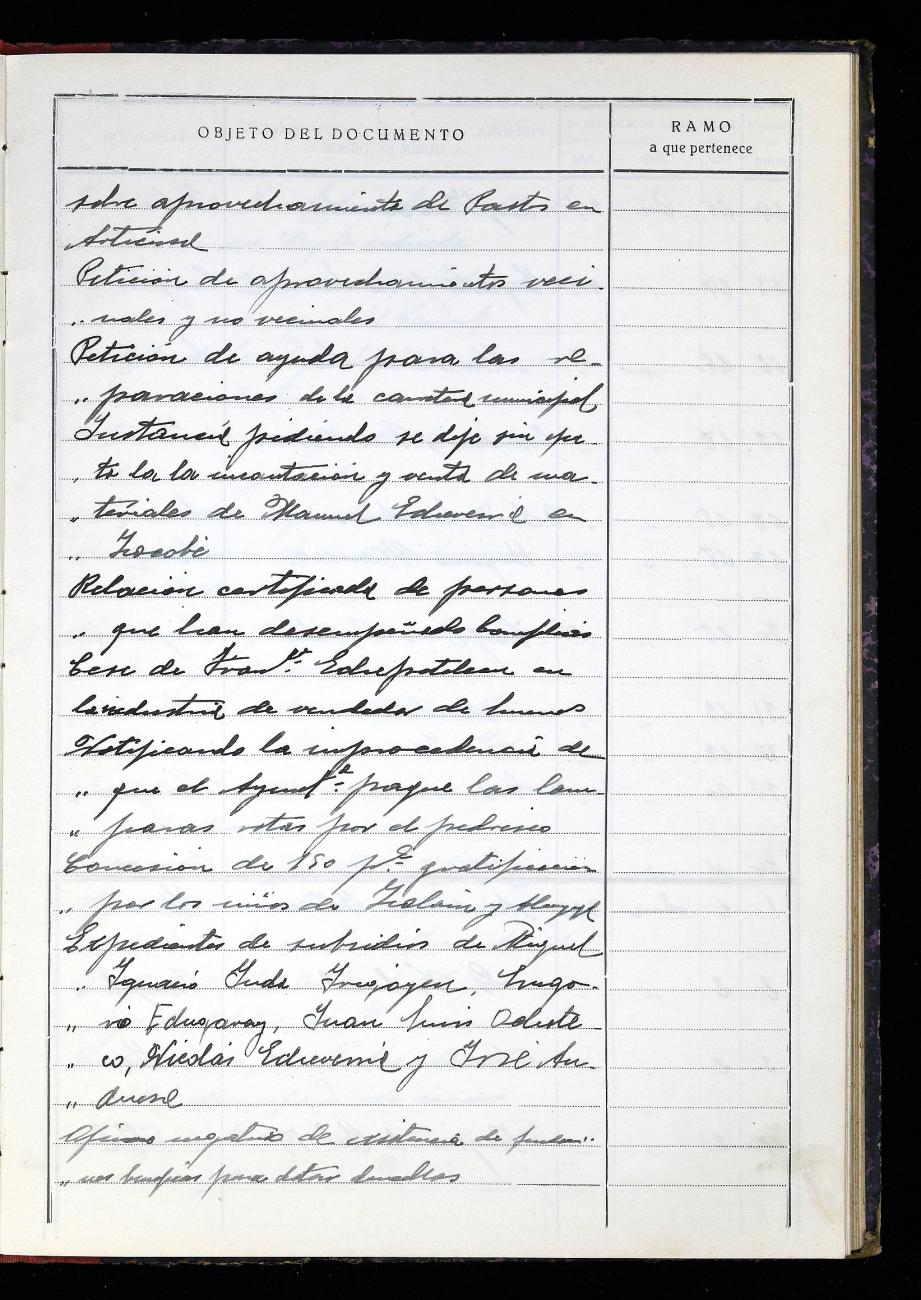 OBJETO DEL DOCUMENTO
RAMO
a que pertenece
sobre aprovechamiento de Pastos en
Articusal
Petición de aprovechamientos veci-
„ nales y no vecinales
Petición de ayuda para las re-
„ paraciones de la carretera municipal
Instancia pidiendo se deje sin efec-
„ to la la incautación y venta de ma-
„ teriales de Manuel Echeverria en
„
Relación certificada de personas
„ que han desempeñado
Cese de Franco. en
la industria de vendedor de huevos
Notificando la improcedencia de
„ que el Ayuntº. pague las lam-
„ paras rotas por el pedrisco
Concesión de 150 pts gratificación
„ por los niños de y
Expedientes de subsidios de Miguel
„ Ignacio Inda Irigoyen, Grego-
„ rio Echegaray, Juan Luis Ocheste
„ co, Nicolás Echeverria y José An-
„
negativo de existencia de
„ para